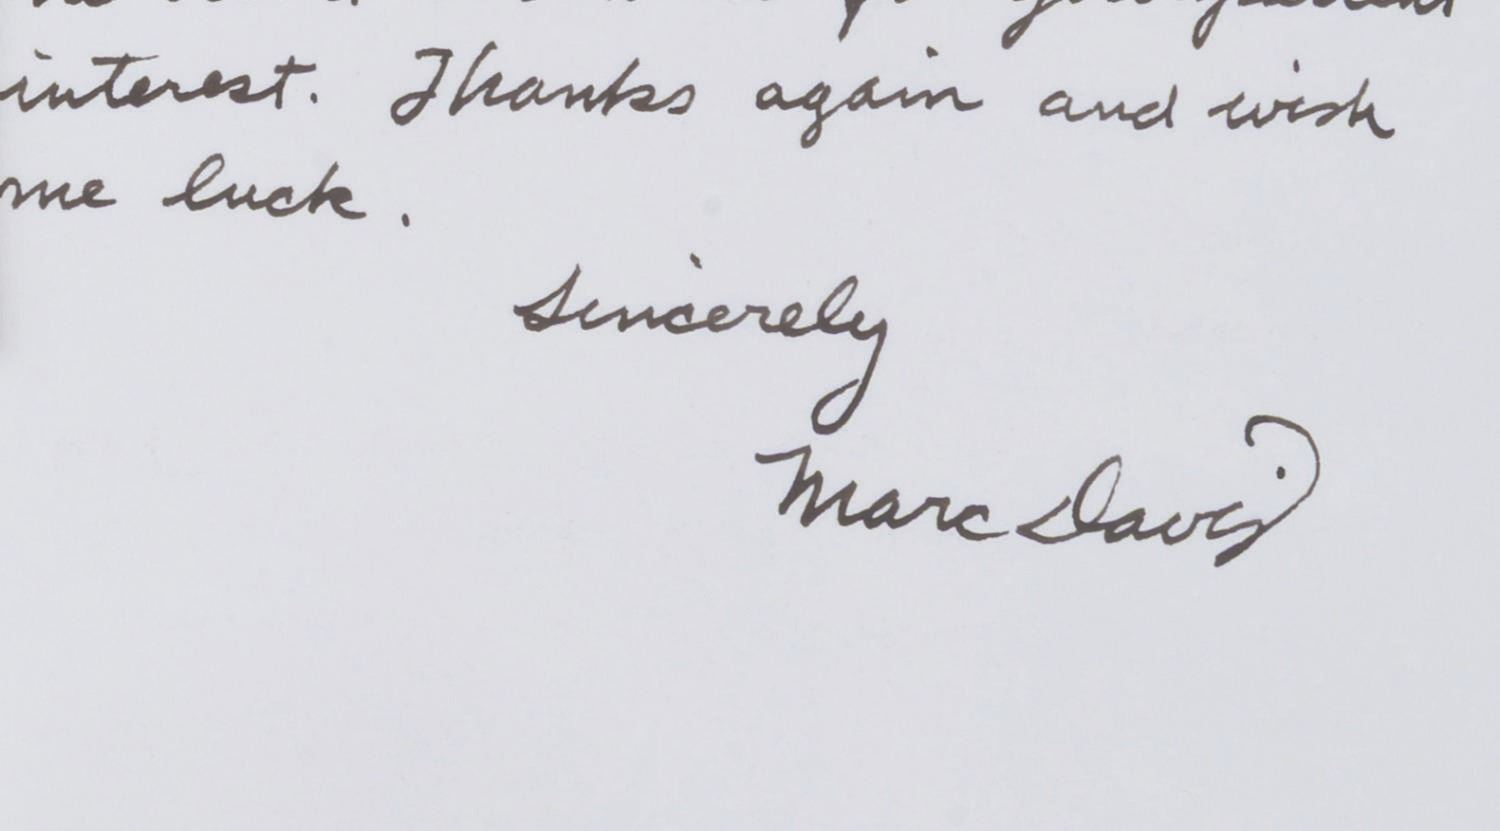 interest. Thanks again and wish
me luck.
Sincerely
Marc Davis